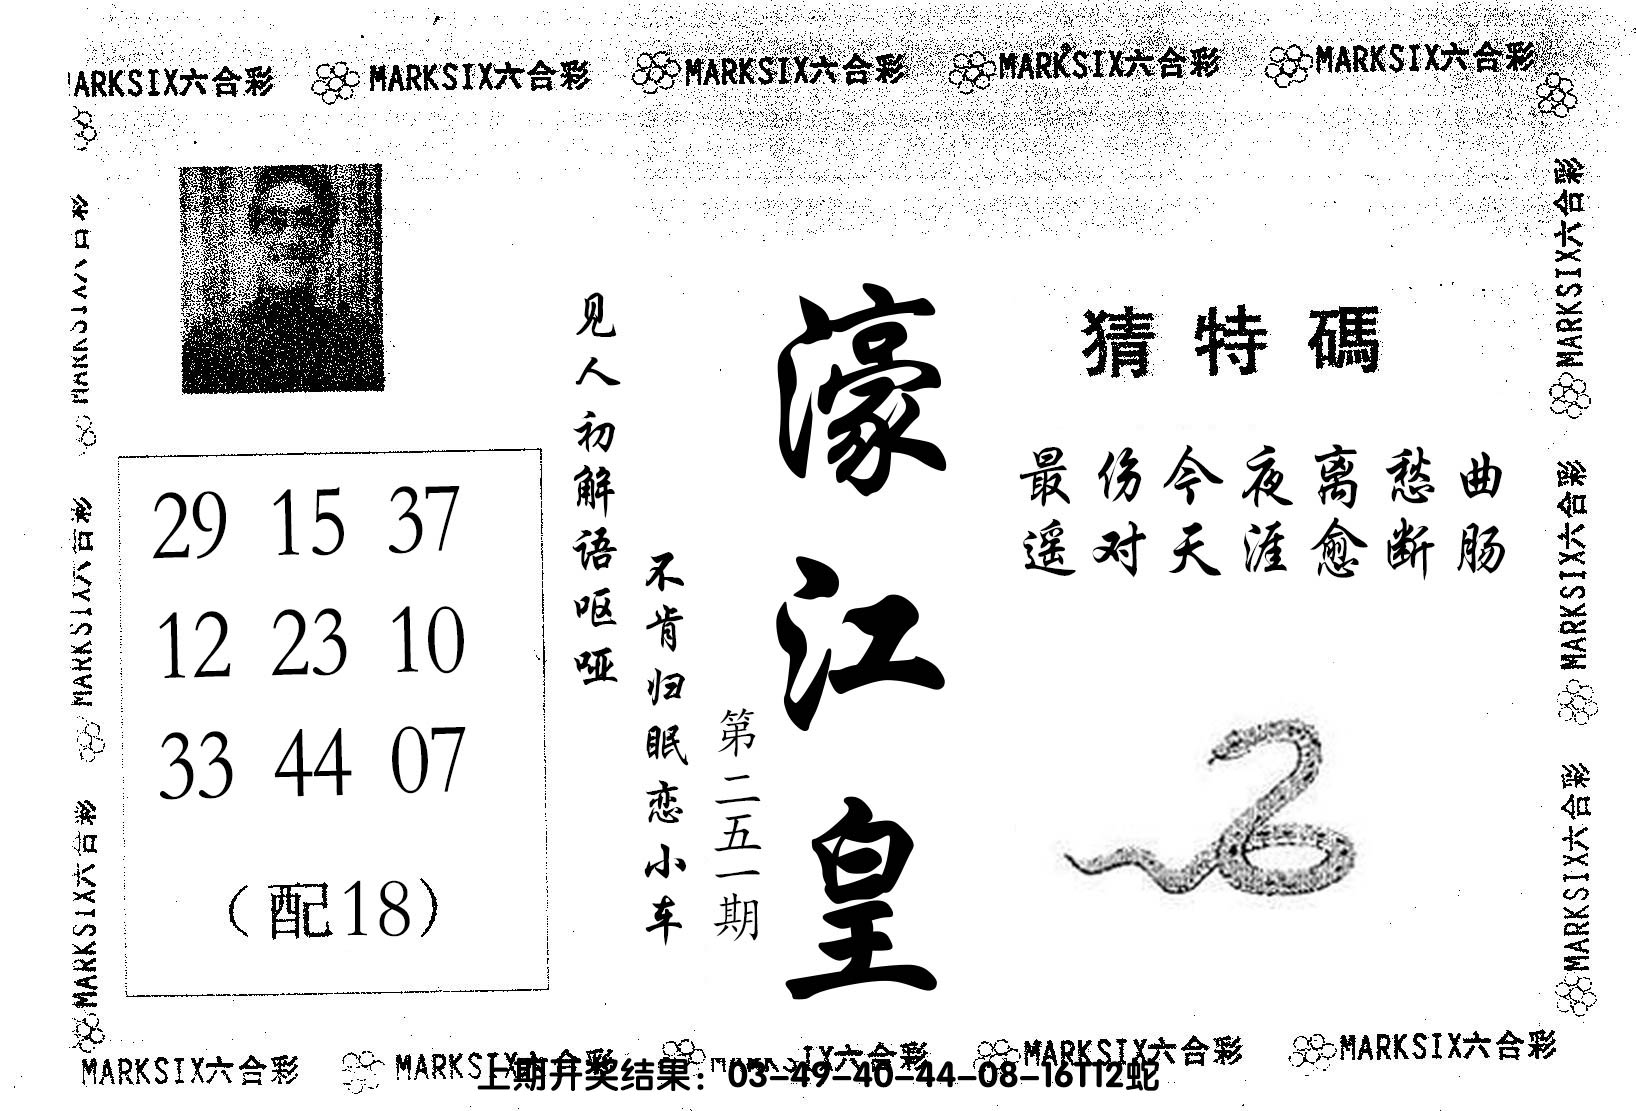 MARKSIX六合彩 MARKSIX六合彩 MARKSIX六合彩 MARKSIX六合彩
猜特碼
最伤今夜离愁曲
遥对天涯愈断肠
濠江皇
第二五一期
见人初解语呕哑
不肯归眠恋小车
29 15 37
12 23 10
33 44 07
（配18）
MARKSIX六合彩
MARKSIX六合彩
MARKSIX六合彩
MARKSIX六合彩
MARKSIX六合彩
MARKSIX六合彩 MARKSIX六合彩 MARKSIX六合彩 MARKSIX六合彩
上期开奖结果：03-49-40-44-08-16T12蛇